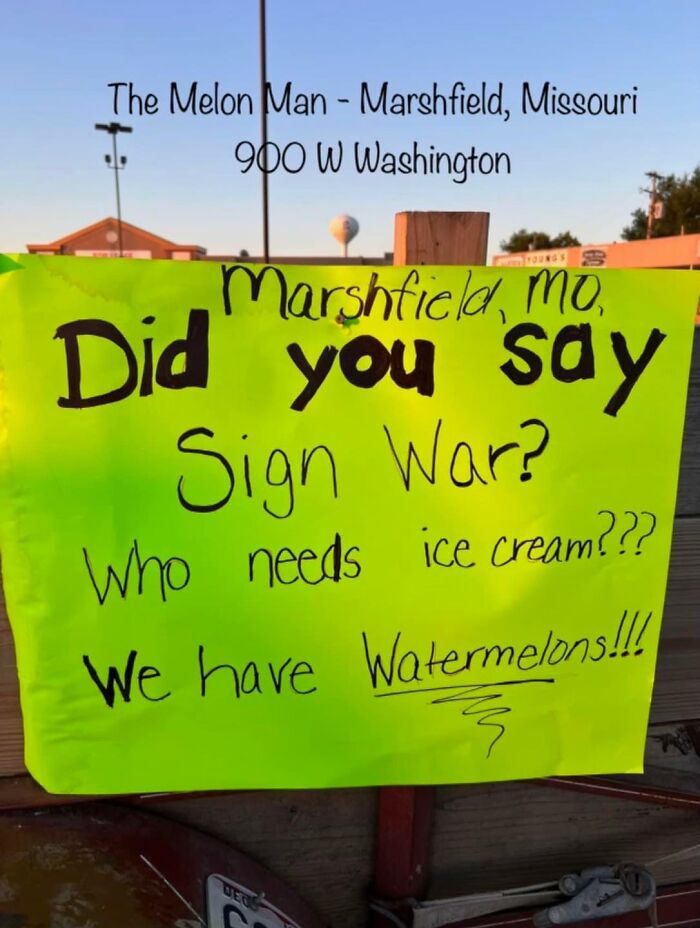 The Melon Man - Marshfield, Missouri
900 W Washington
YOUNG'S
Marshfield, MO.
Did you say
Sign War?
Who needs ice cream???
We have Watermelons!!!
DEC